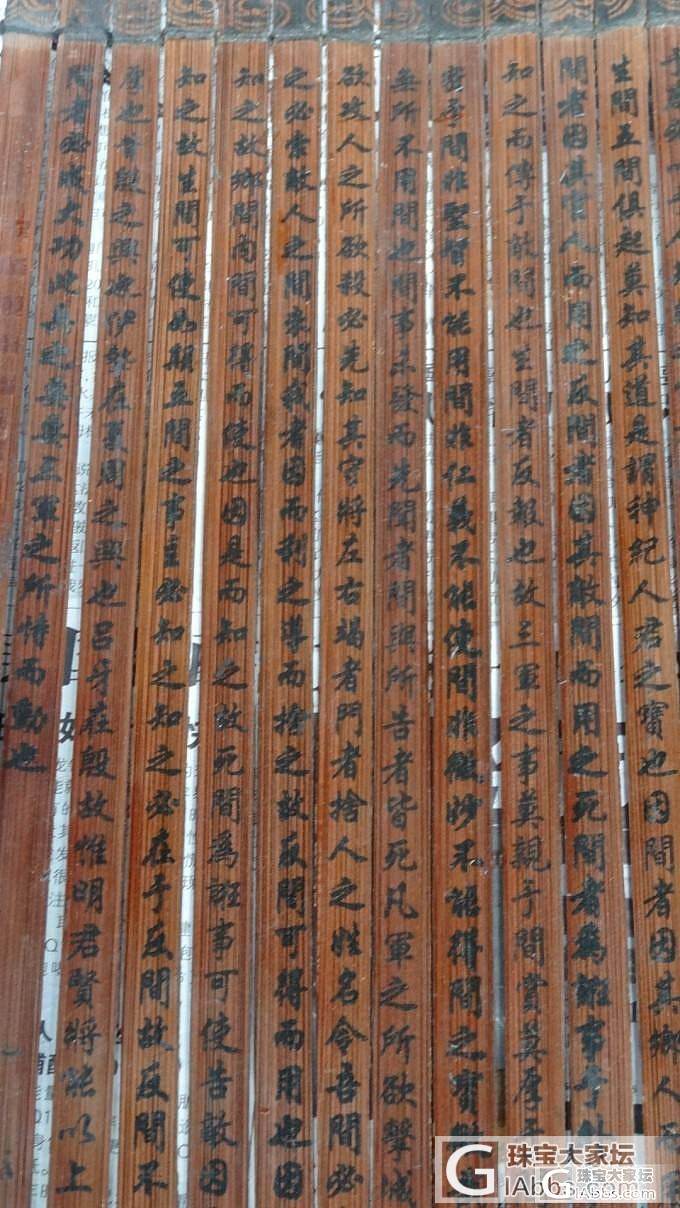 生間五間俱起莫知其道是謂神紀人君之寶也因間者因其鄉人
間者因其官人而用之反間者因其敵間而用之死間者為誑事于外
知之而傳于敵間也生間者反報也故三軍之事莫親于間賞莫厚于
密于間非聖智不能用間非仁義不能使間非微妙不能得間之寶
無所不用間也間事未發而先聞者間與所告者皆死凡軍之所欲擊城
欲攻人之所欲殺必先知其守將左右謁者門者捨人之姓名令吾間必
之必索敵人之間來間我者因而利之導而捨之故反間可得而用也因
知之故鄉間內間可得而使也因是而知之故死間為誑事可使告敵因
知之故生間可使如期五間之事主必知之知之必在于反間故反間不
厚也昔殷之興也伊摯在夏周之興也呂牙在殷故惟明君賢將能以上
間者必成大功此兵之要三軍之所恃而動也
珠宝大家坛
GiAbbs.com